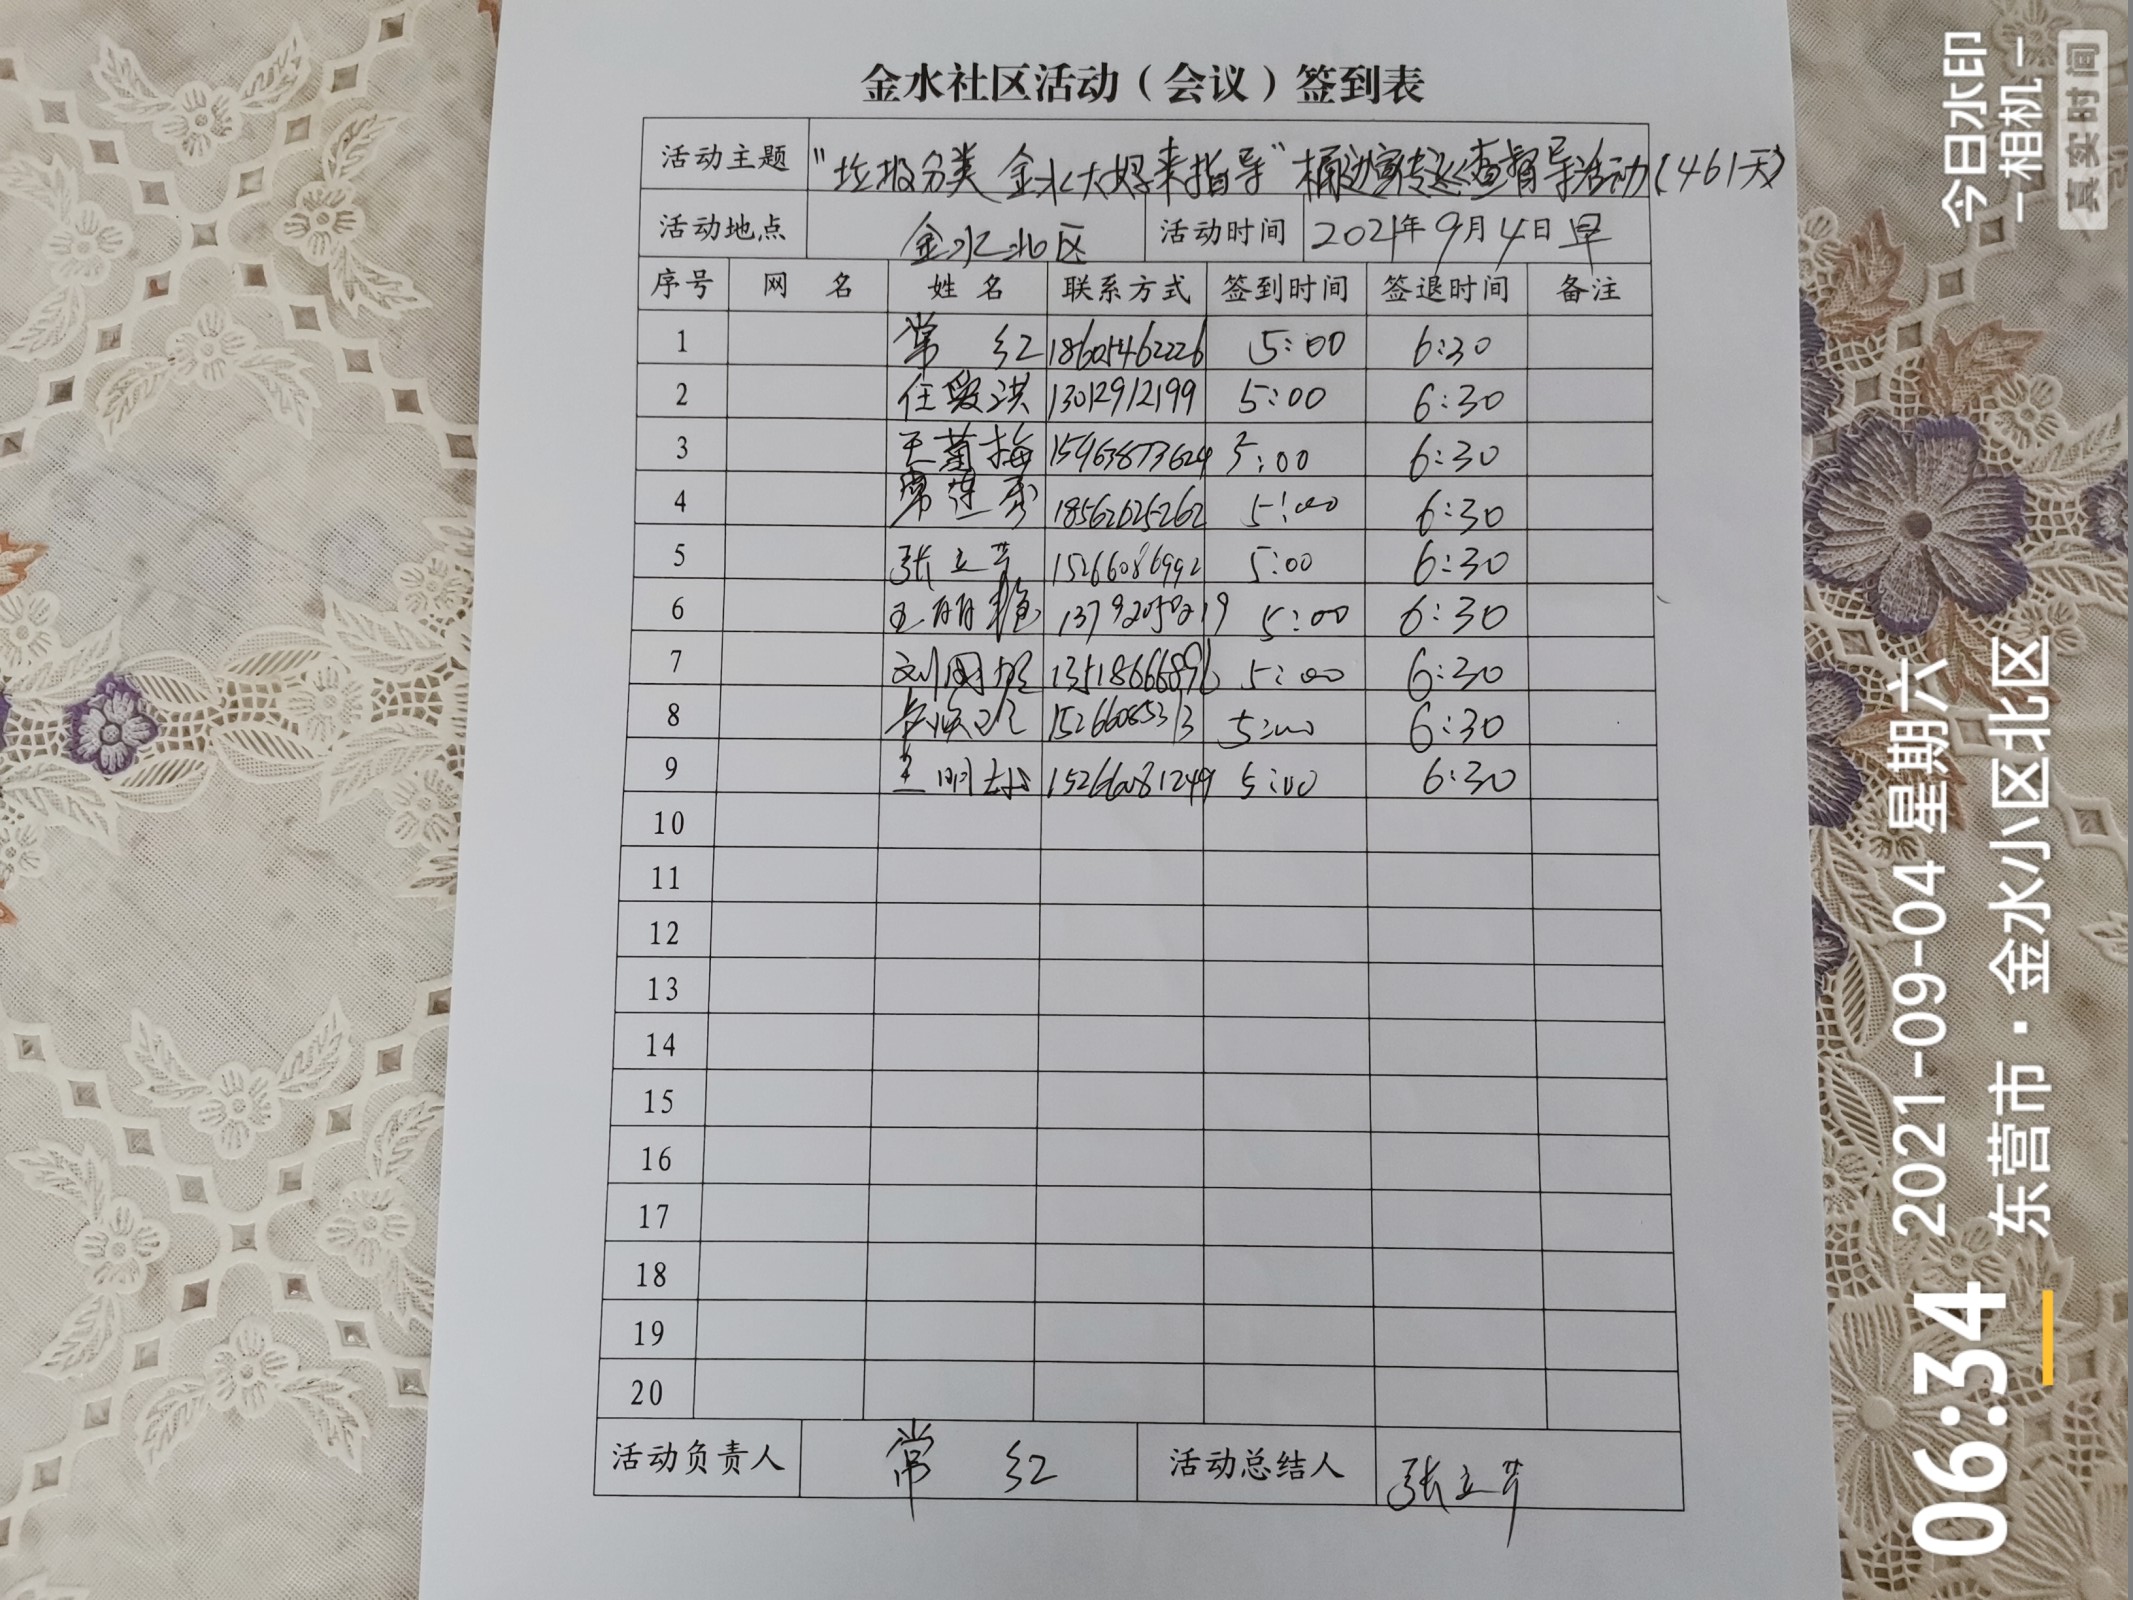 金水社区活动（会议）签到表
活动主题 "垃圾分类 金水大妈来指导"桶边宣传巡查督导活动(461天)
活动地点 金水北区 活动时间 2021年9月4日早
序号 网 名 姓 名 联系方式 签到时间 签退时间 备注
1 常 红 18605462226 5:00 6:30
2 任爱洪 13012912199 5:00 6:30
3 王菊梅 15963873624 5:00 6:30
4 常莲秀 18562025262 5:00 6:30
5 张立芹 15266086992 5:00 6:30
6 5:00 6:30
7 刘国 13518666896 5:00 6:30
8 15266085313 5:00 6:30
9 兰明 15266081249 5:00 6:30
10
11
12
13
14
15
16
17
18
19
20
活动负责人 常 红 活动总结人 张立芹
今日水印
相机
真实时间
06:34 2021-09-04 星期六
东营市·金水小区北区